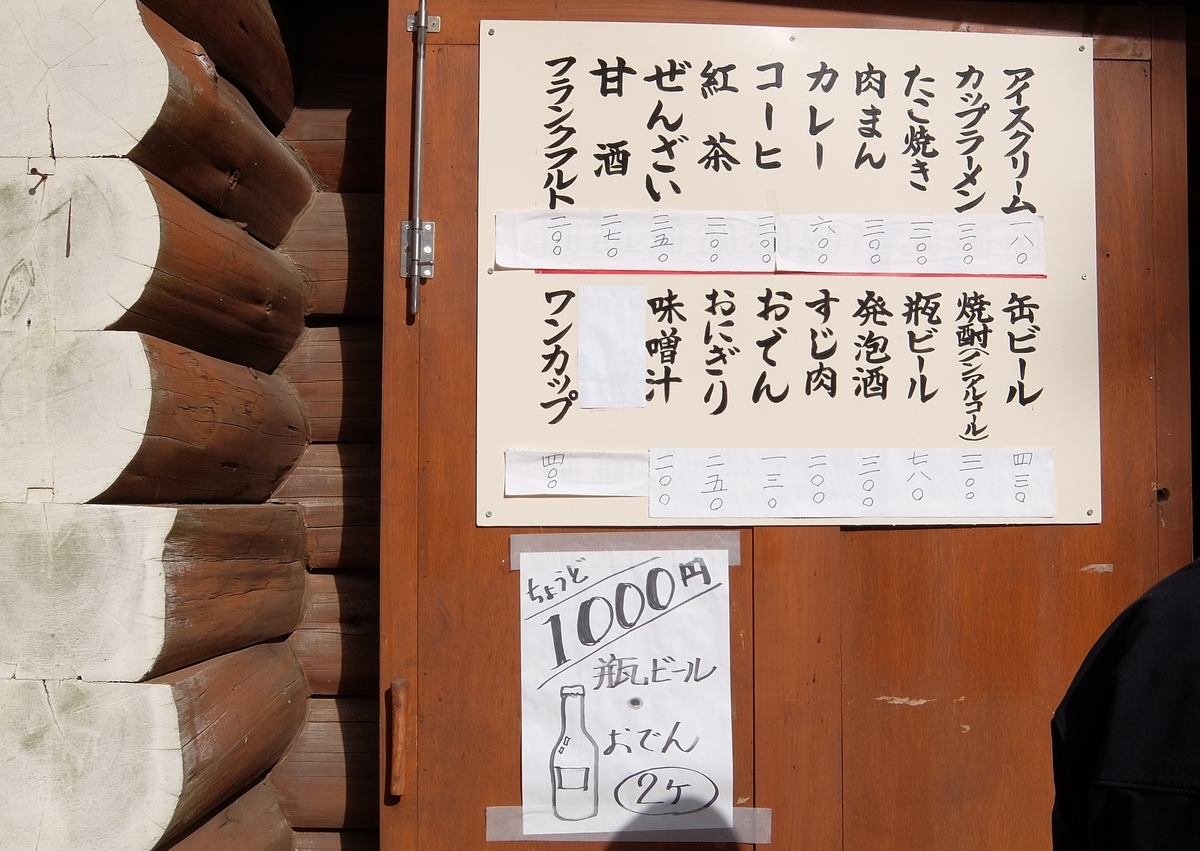 アイスクリーム 一八〇
カップラーメン 三〇〇
たこ焼き 三〇〇
肉まん 三〇〇
カレー 六〇〇
コーヒ 三〇〇
紅茶 三〇〇
ぜんざい 三五〇
甘酒 二七〇
フランクフルト 二〇〇
缶ビール 四三〇
焼酎(ノンアルコール) 三〇〇
瓶ビール 七八〇
発泡酒 三〇〇
すじ肉 二〇〇
おでん 一三〇
おにぎり 二五〇
味噌汁 二〇〇
ワンカップ 四〇〇
ちょうど
1000円
瓶ビール
おでん
2ケ